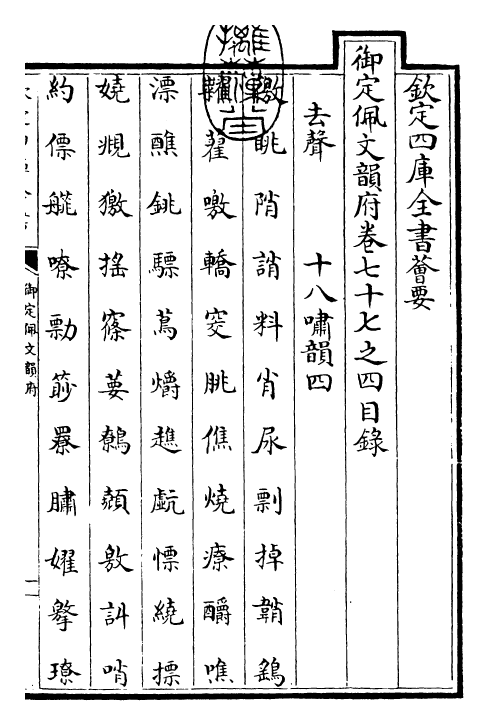 欽定四庫全書薈要
御定佩文韻府卷七十七之四目錄
去聲 十八嘯韻四
眺陗誚料肖尿剽掉鞘鷂
藋噭轎窔朓僬燒療釂噍
漂醮銚驃蔦爝趭虩慓繞摽
嬈覜獥搖窱葽鷯顤敫訆哨
約僄艞嘹勡篍尞膞嬥擎璙
御定佩文韻府